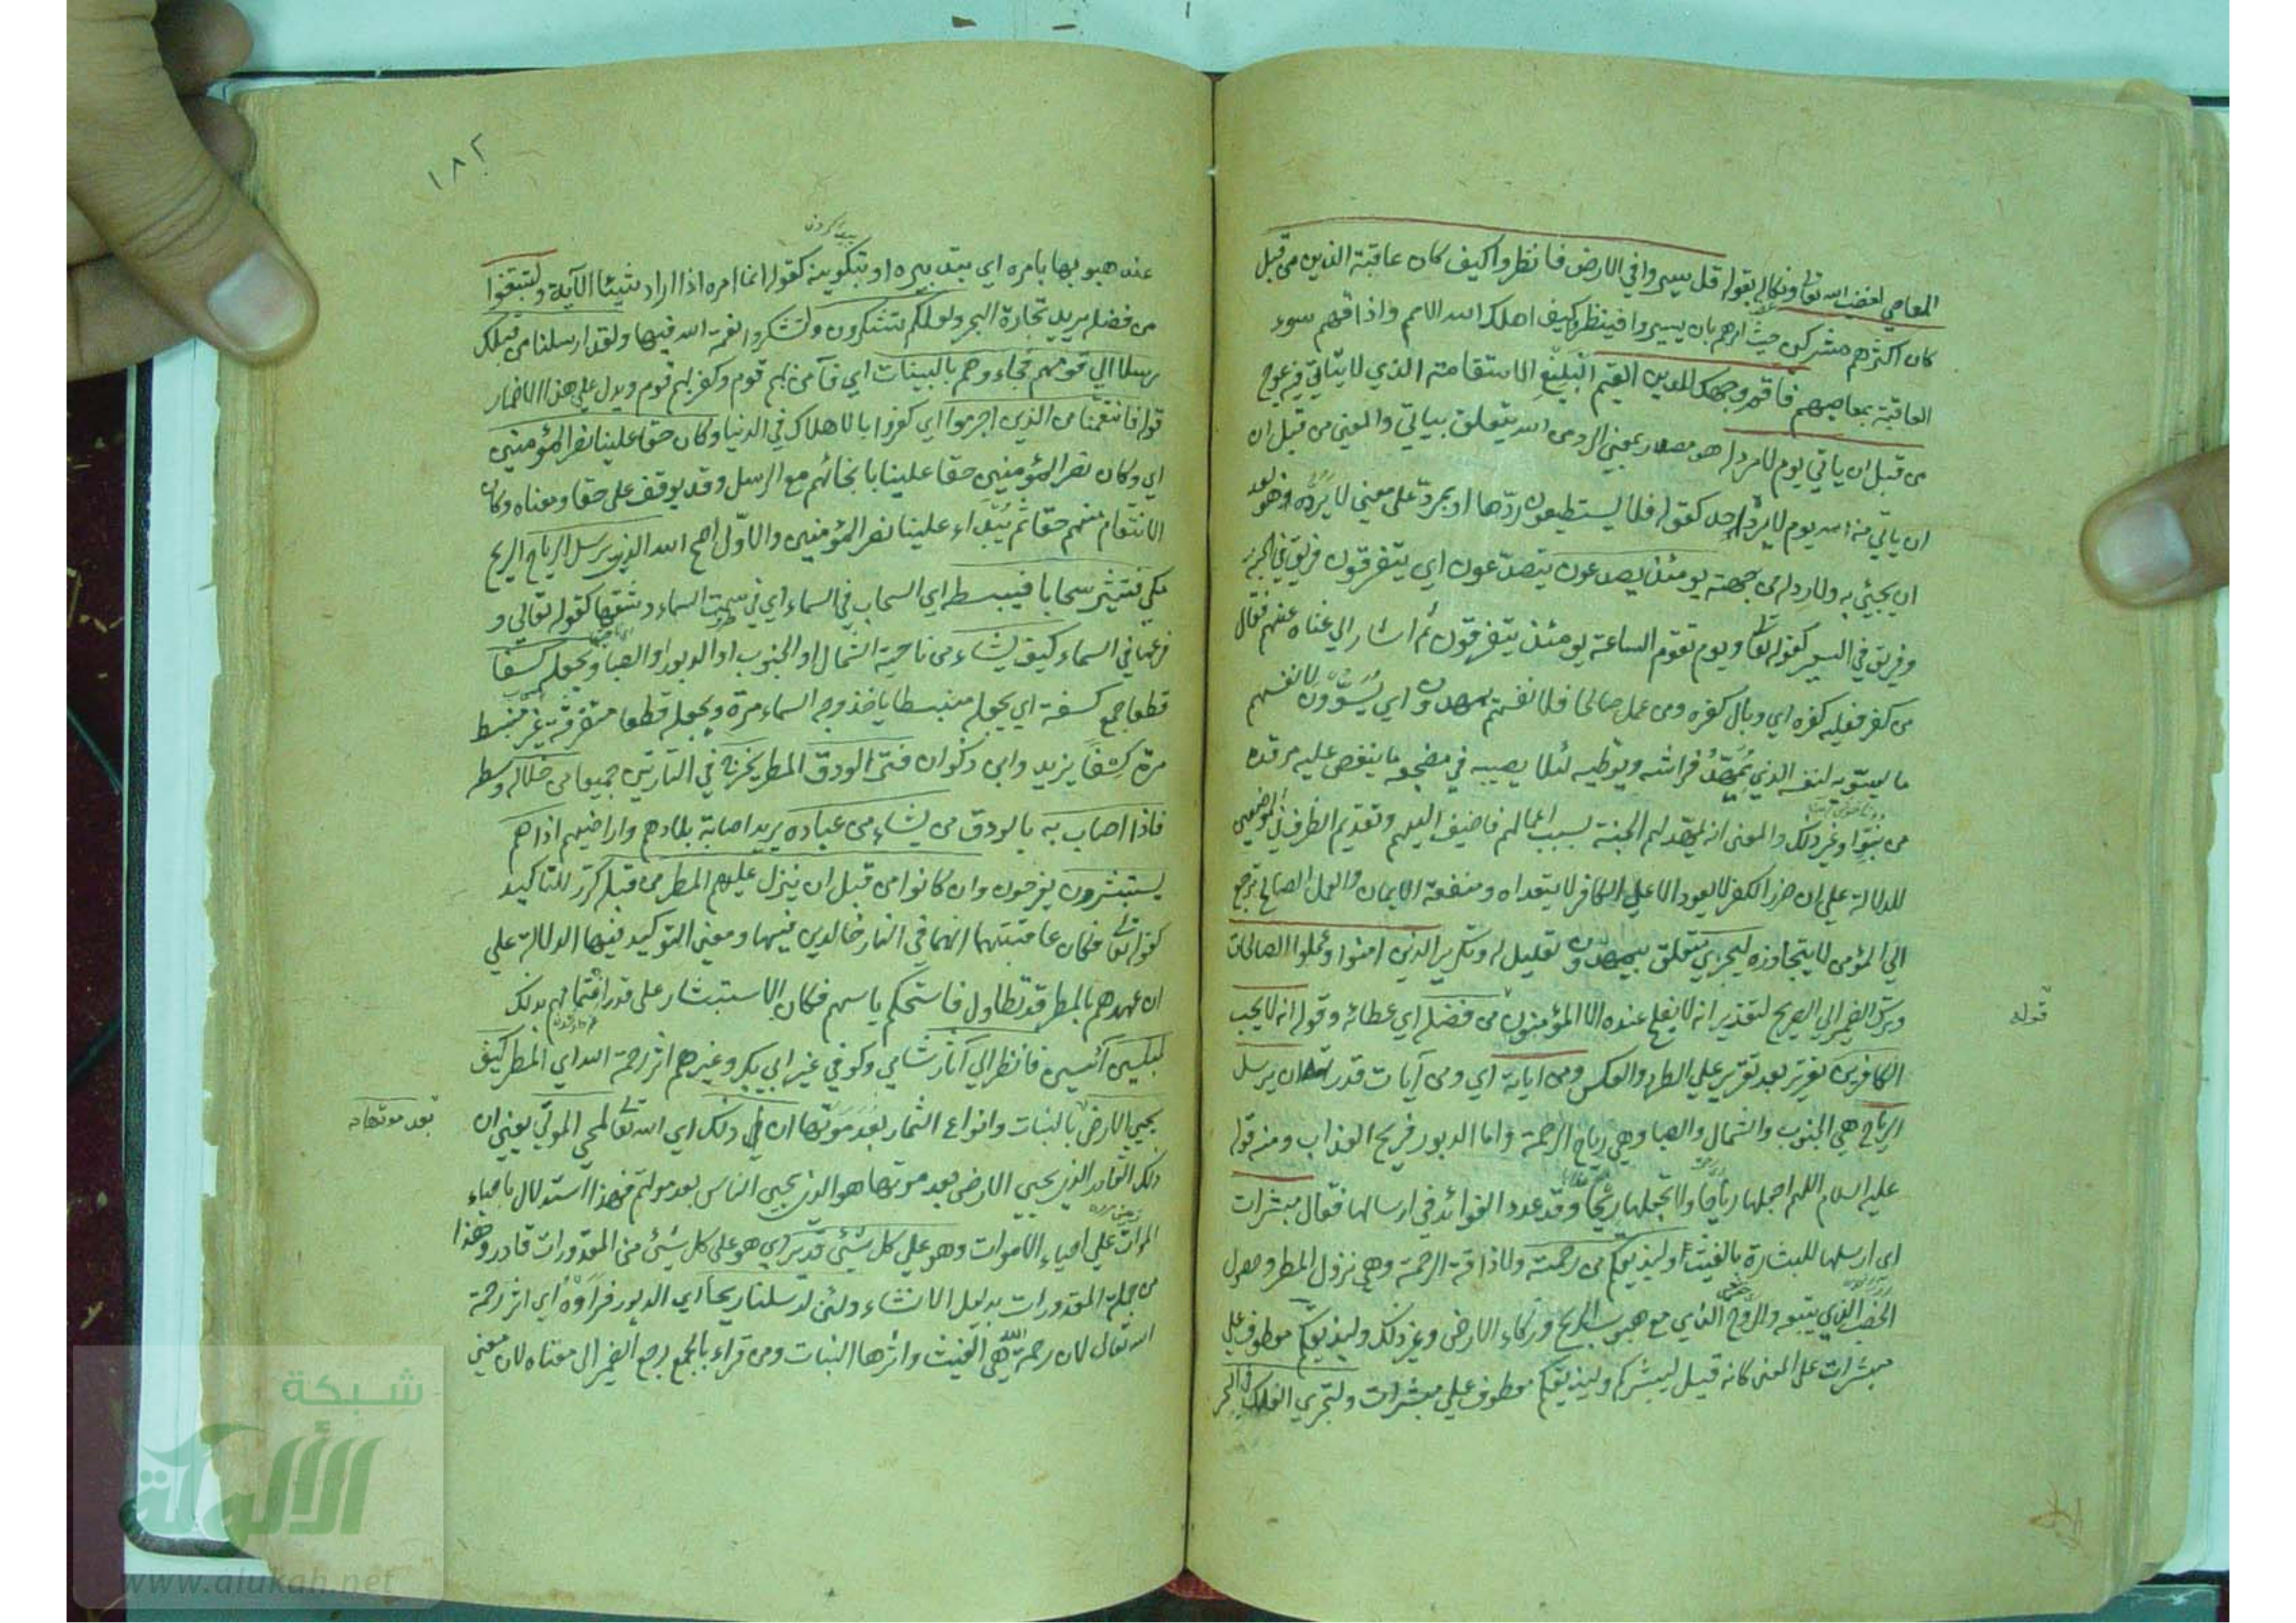 المعاصي لغضب الله تعالى ونكاله بقوله قل سيروا في الارض فانظروا كيف كان عاقبة الذين من قبل
كان اكثرهم مشركين حيث امرهم بان يسيروا فينظروا كيف اهلك الله الامم واذاقهم سوء
العاقبة بمعاصيهم فاقم وجهك للدين القيم البليغ الاستقامة الذي لا يتأتى فيه عوج
من قبل ان ياتي يوم لا مرد له هو مصدر بمعنى الرد من الله يتعلق بياتي والمعنى من قبل ان
ان ياتي من الله يوم لا يرده احد كقوله فلا يستطيعون ردها او بمرد على معنى لا يرده هو بعد
ان يجيئ به ولا رد له من جهته يومئذ يصدعون يتصدعون اي يتفرقون فريق في الجنة
وفريق في السعير كقوله تعالى ويوم تقوم الساعة يومئذ يتفرقون ثم اشار الى غناه عنهم فقال
من كفر فعليه كفره اي وبال كفره ومن عمل صالحا فلانفسهم يمهدون اي يسوون لانفسهم
ما يسويه لنفسه الذي يمهد فراشه ويوطيه لئلا يصيبه في مضجعه ما ينغص عليه مرقده
من نتوا وغير ذلك والمعنى انه يمهد لهم الجنة بسبب اعمالهم فاضيف اليهم وتقديم الظرف في الموضعين
للدلالة على ان ضرر الكفر لا يعود الا على الكافر لا يتعداه ومنفعة الايمان والعمل الصالح ترجع
الى المؤمن لا يتجاوزه ليجزي متعلق بيمهدون تعليل له وتكرير الذين امنوا وعملوا الصالحات
وترك الضمير الى الصريح لتقدير انه لا يفلح عنده الا المؤمنون من فضله اي عطائه وقوله انه لا يحب
قوله
الكافرين تقرير بعد تقرير على الطرد والعكس ومن اياته اي ومن آيات قدرته ان يرسل
الرياح هي الجنوب والشمال والصبا وهي رياح الرحمة واما الدبور فريح العذاب ومنه قوله
عليه السلام اللهم اجعلها رياحا ولا تجعلها ريحا وقد عدد الفوائد في ارسالها فقال مبشرات
اي ارسلها للبشارة بالغيث وليذيقكم من رحمته ولاذاقة الرحمة وهي نزول المطر وحصول
الخصب الذي يتبعه والروح الذي مع هبوب الريح وزكاء الارض وغير ذلك وليذيقكم معطوف على
مبشرات على المعنى كانه قيل ليبشركم وليذيقكم معطوف على مبشرات ولتجري الفلك في البحر
١٨٢
عند هبوبها بامره اي بتدبيره او بتكوينه كقوله انما امره اذا اراد شيئا الآية ولتبتغوا
من فضله يريد تجارة البحر ولعلكم تشكرون ولتشكروا نعمة الله فيها ولقد ارسلنا من قبلك
رسلا الى قومهم فجاءوهم بالبينات اي فآمن بهم قوم وكفر بهم قوم ويدل على هذا الاضمار
قوله فانتقمنا من الذين اجرموا اي كفروا بالاهلاك في الدنيا وكان حقا علينا نصر المؤمنين
اي وكان نصر المؤمنين حقا علينا بانجائهم مع الرسل وقد يوقف على حقا ومعناه وكان
الانتقام منهم حقا ثم يبتداء علينا نصر المؤمنين والاول اصح الله الذي يرسل الرياح الريح
مكي فتثير سحابا فيبسطه اي السحاب في السماء اي في سمت السماء وشقها كقوله تعالى و
فرعها في السماء كيف يشاء من ناحية الشمال او الجنوب او الدبور او الصبا ويجعله كسفا
قطعا جمع كسفة اي يجعله منبسطا ياخذ وجه السماء مرة ويجعله قطعا متفرقة غير منبسط
مرة كسفا يزيد وابن ذكوان فترى الودق المطر يخرج في التارتين جميعا من خلاله وسطه
فاذا اصاب به بالودق من يشاء من عباده يريد اصابة بلادهم واراضيهم اذا هم
يستبشرون يفرحون وان كانوا من قبل ان ينزل عليهم المطر من قبله كرر للتاكيد
كقوله تعالى فكان عاقبتهما انهما في النار خالدين فيها ومعنى التوكيد فيها الدلالة على
ان عهدهم بالمطر قد تطاول فاستحكم ياسهم فكان الاستبشار على قدر اغتمامهم بذلك
لمبلسين آئسين فانظر الى آثار شامي وكوفي غير ابي بكر وغيرهم اثر رحمة الله اي المطر كيف
يحيي الارض بالنبات وانواع الثمار بعد موتها ان ذلك اي الله تعالى لمحي الموتى يعني ان
بعد موتها
ذلك القادر الذي يحيي الارض بعد موتها هو الذي يحيي الناس بعد موتهم فهذا استدلال باحياء
الموات على احياء الاموات وهو على كل شيئ قدير اي هو على كل شيئ من المقدورات قادر وهذا
من جملة المقدورات بدليل الانشاء ولئن ارسلنا ريحا اي الدبور فراوه اي اثر رحمة
الله تعالى لان رحمة الله هي الغيث واثرها النبات ومن قراء بالجمع رجع الضمير الى معناه لان معنى
شبكة
الألوكة
www.alukah.net